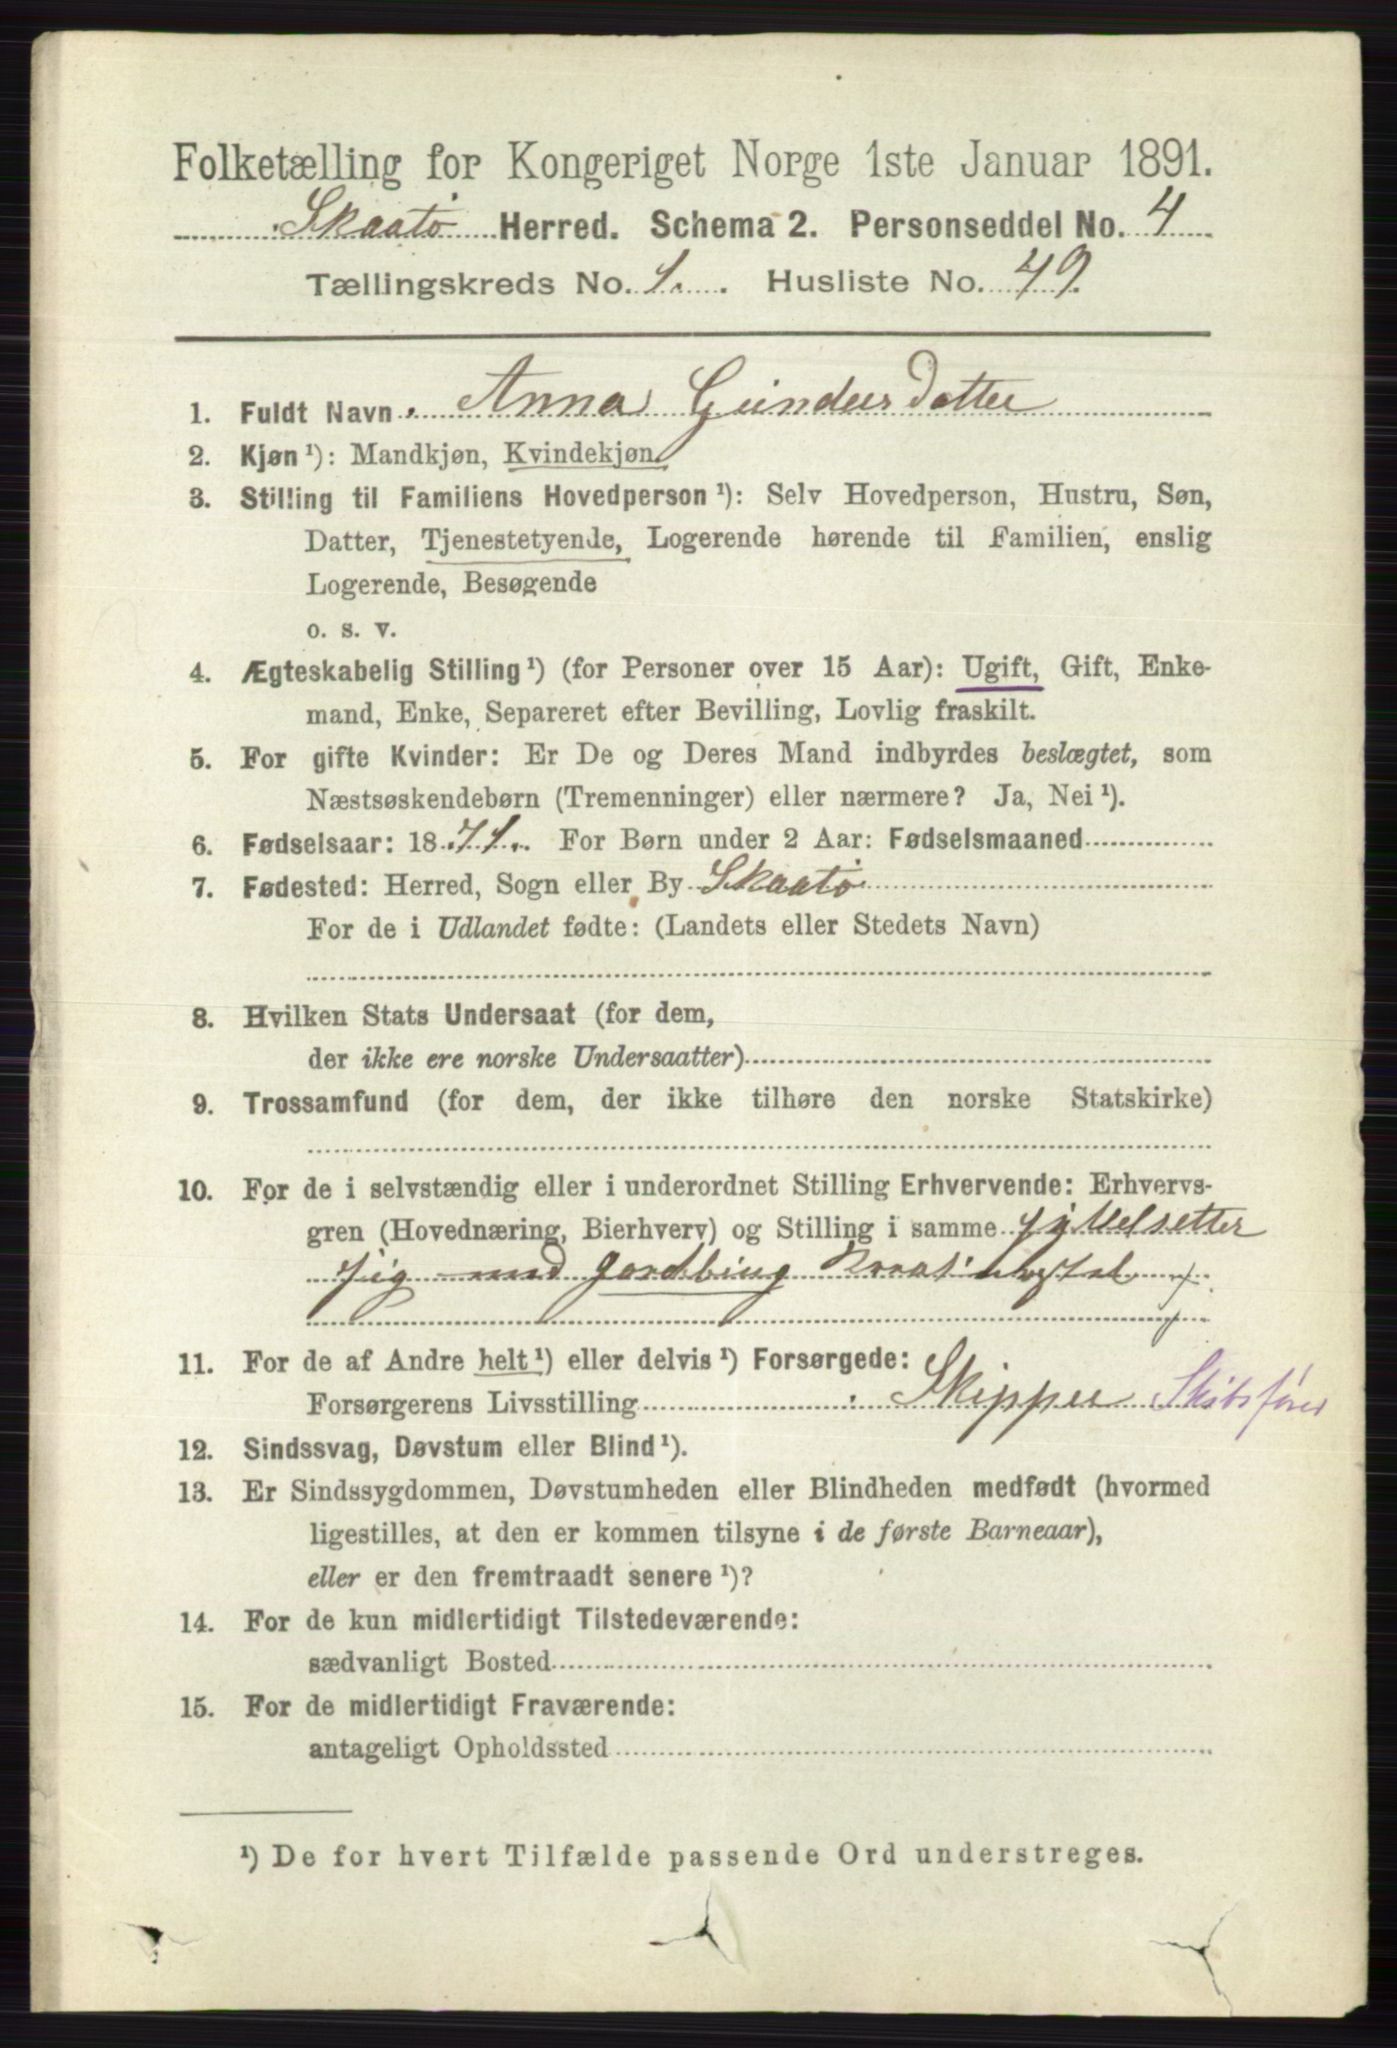 Folketælling for Kongeriget Norge 1ste Januar 1891.
Skaatø Herred. Schema 2. Personseddel No. 4
Tællingskreds No. 1. Husliste No. 49
1. Fuldt Navn Anna Gundersdatter
2. Kjøn ¹): Mandkjøn, Kvindekjøn.
3. Stilling til Familiens Hovedperson ¹): Selv Hovedperson, Hustru, Søn,
Datter, Tjenestetyende, Logerende hørende til Familien, enslig
Logerende, Besøgende
o. s. v.
4. Ægteskabelig Stilling ¹) (for Personer over 15 Aar): Ugift, Gift, Enke-
mand, Enke, Separeret efter Bevilling, Lovlig fraskilt.
5. For gifte Kvinder: Er De og Deres Mand indbyrdes beslægtet, som
Næstsøskendebørn (Tremenninger) eller nærmere? Ja, Nei ¹).
6. Fødselsaar: 1871. For Børn under 2 Aar: Fødselsmaaned
7. Fødested: Herred, Sogn eller By Skaatø
For de i Udlandet fødte: (Landets eller Stedets Navn)
8. Hvilken Stats Undersaat (for dem,
der ikke ere norske Undersaatter)
9. Trossamfund (for dem, der ikke tilhøre den norske Statskirke)
10. For de i selvstændig eller i underordnet Stilling Erhvervende: Erhvervs-
gren (Hovednæring, Bierhverv) og Stilling i samme sysselsetter
sig med Jordbrug
11. For de af Andre helt ¹) eller delvis ¹) Forsørgede:
Forsørgerens Livsstilling Skipper Skibsfører
12. Sindssvag, Døvstum eller Blind ¹).
13. Er Sindssygdommen, Døvstumheden eller Blindheden medfødt (hvormed
ligestilles, at den er kommen tilsyne i de første Barneaar),
eller er den fremtraadt senere ¹)?
14. For de kun midlertidigt Tilstedeværende:
sædvanligt Bosted
15. For de midlertidigt Fraværende:
antageligt Opholdssted
¹) De for hvert Tilfælde passende Ord understreges.